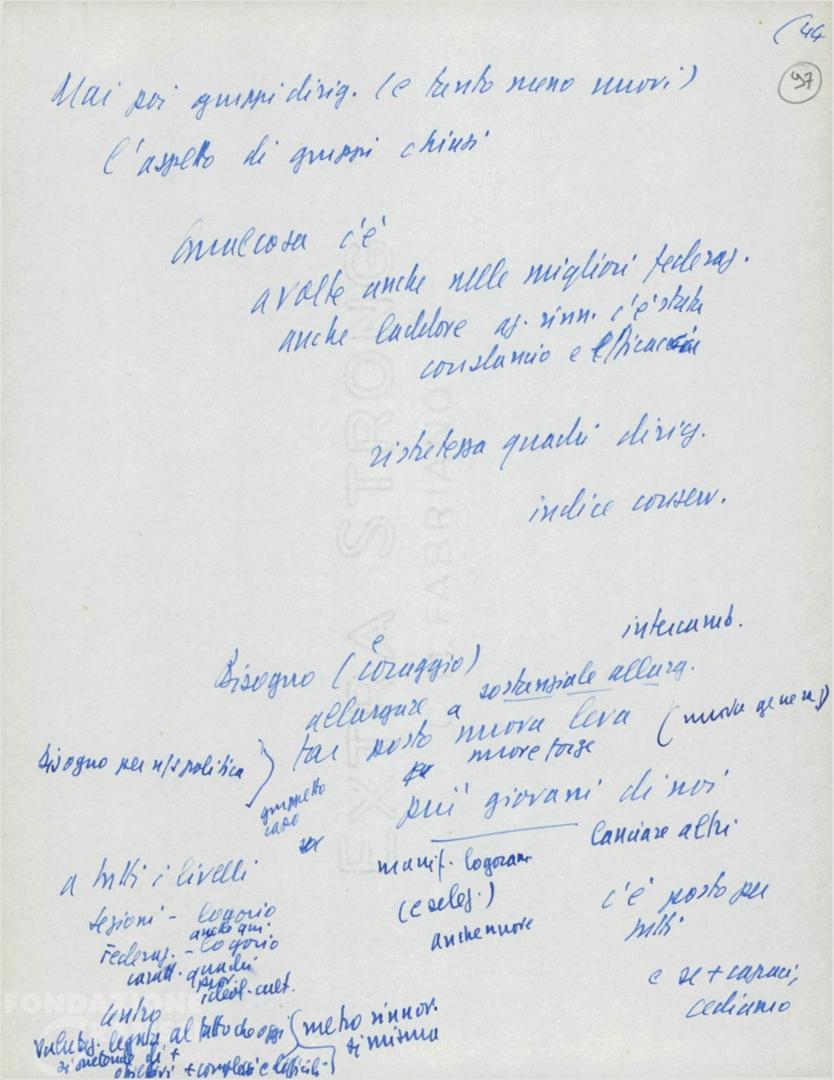 (44
97
Mai poi gruppi dirig. (e tanto meno nuovi)
l'aspetto di gruppi chiusi
Qualcosa c'è
a volte anche nelle migliori federaz.
anche laddove az. rinn. c'è stata
con slancio e efficacia
ristretezza quadri dirig.
indice conserv.
intercamb.
Bisogno (e coraggio)
allargare a sostanziale allarg.
far posto nuova leva (nuova generaz)
nuove forze
Bisogno per n/s politica
gruppetto
caso
più giovani di noi
lanciare altri
a tutti i livelli
manif. logoram
(e seleз.)
anche nuove
c'è posto per
tutti
sezioni - logorio
anche qui
Federaz. - logorio
caratt. quadri
ideol-cult.
e se + capaci,
cediamo
centro
metro rinnov.
si misura
al fatto che oggi
obiettivi + complessi e difficili
EXTRA STRONG
FABRIANO
FONDAZIONE